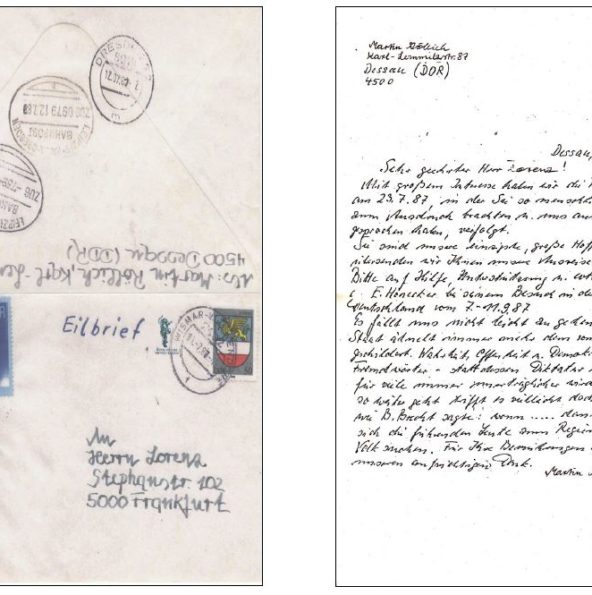 DRESDEN
BAHNPOST
ZUG 0979 12.7.88
LEIPZIG
Abs: Martin Röllich, Karl Len
4500 Dessau (DDR)
Eilbrief
WISMAR
An
Herrn Lorenz
Stephanstr. 102
5000 Frankfurt
Martin Röllich
Karl-Lemmitzstr. 87
Dessau (DDR)
4500
Dessau,
Sehr geehrter Herr Lorenz!
Mit großem Interesse haben wir die
am 29.7.87, in der Sie so menschl
zum Ausdruck brachten u. uns aus
gesprochen haben, verfolgt.
Sie sind unsere einzigste, große Hoff
übersenden wir Ihnen unsere Ausreise
Bitte auf Hilfe, Unterstützung u.
E. Honecker bei seinem Besuch in de
Deutschland vom 7.-11.9.87
Es fällt uns nicht leicht zu gehen
Staat ähnelt immer mehr dem von
geschildert. Wahrheit, Offenheit u. Demokr
Fremdwörter - stattdessen Diktatur
für viele immer unerträglicher wird
so weiter geht hilft es vielleicht doch
wie B. Brecht sagte: wenn ..... dann
sich die führenden Leute zum Regie
Volk suchen. Für Ihre Bemühungen
unseren aufrichtigen Dank.
Martin